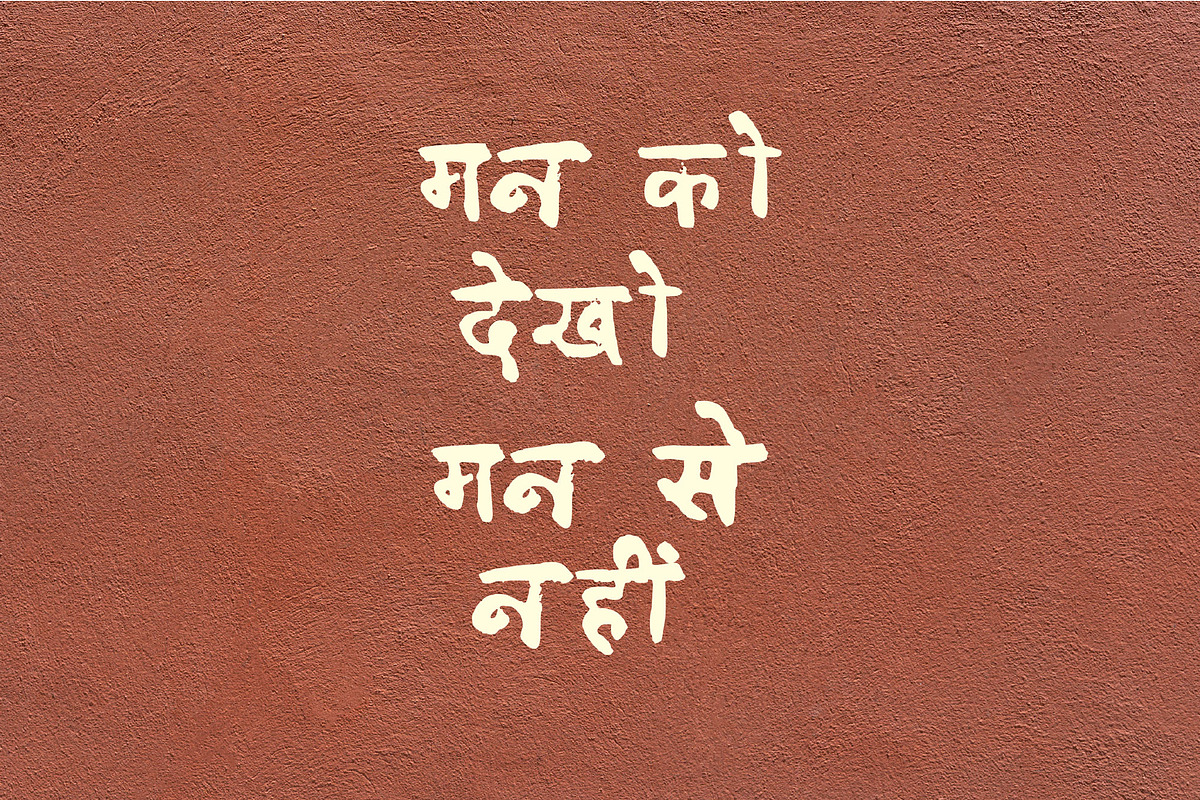 मन को
देखो
मन से
नहीं